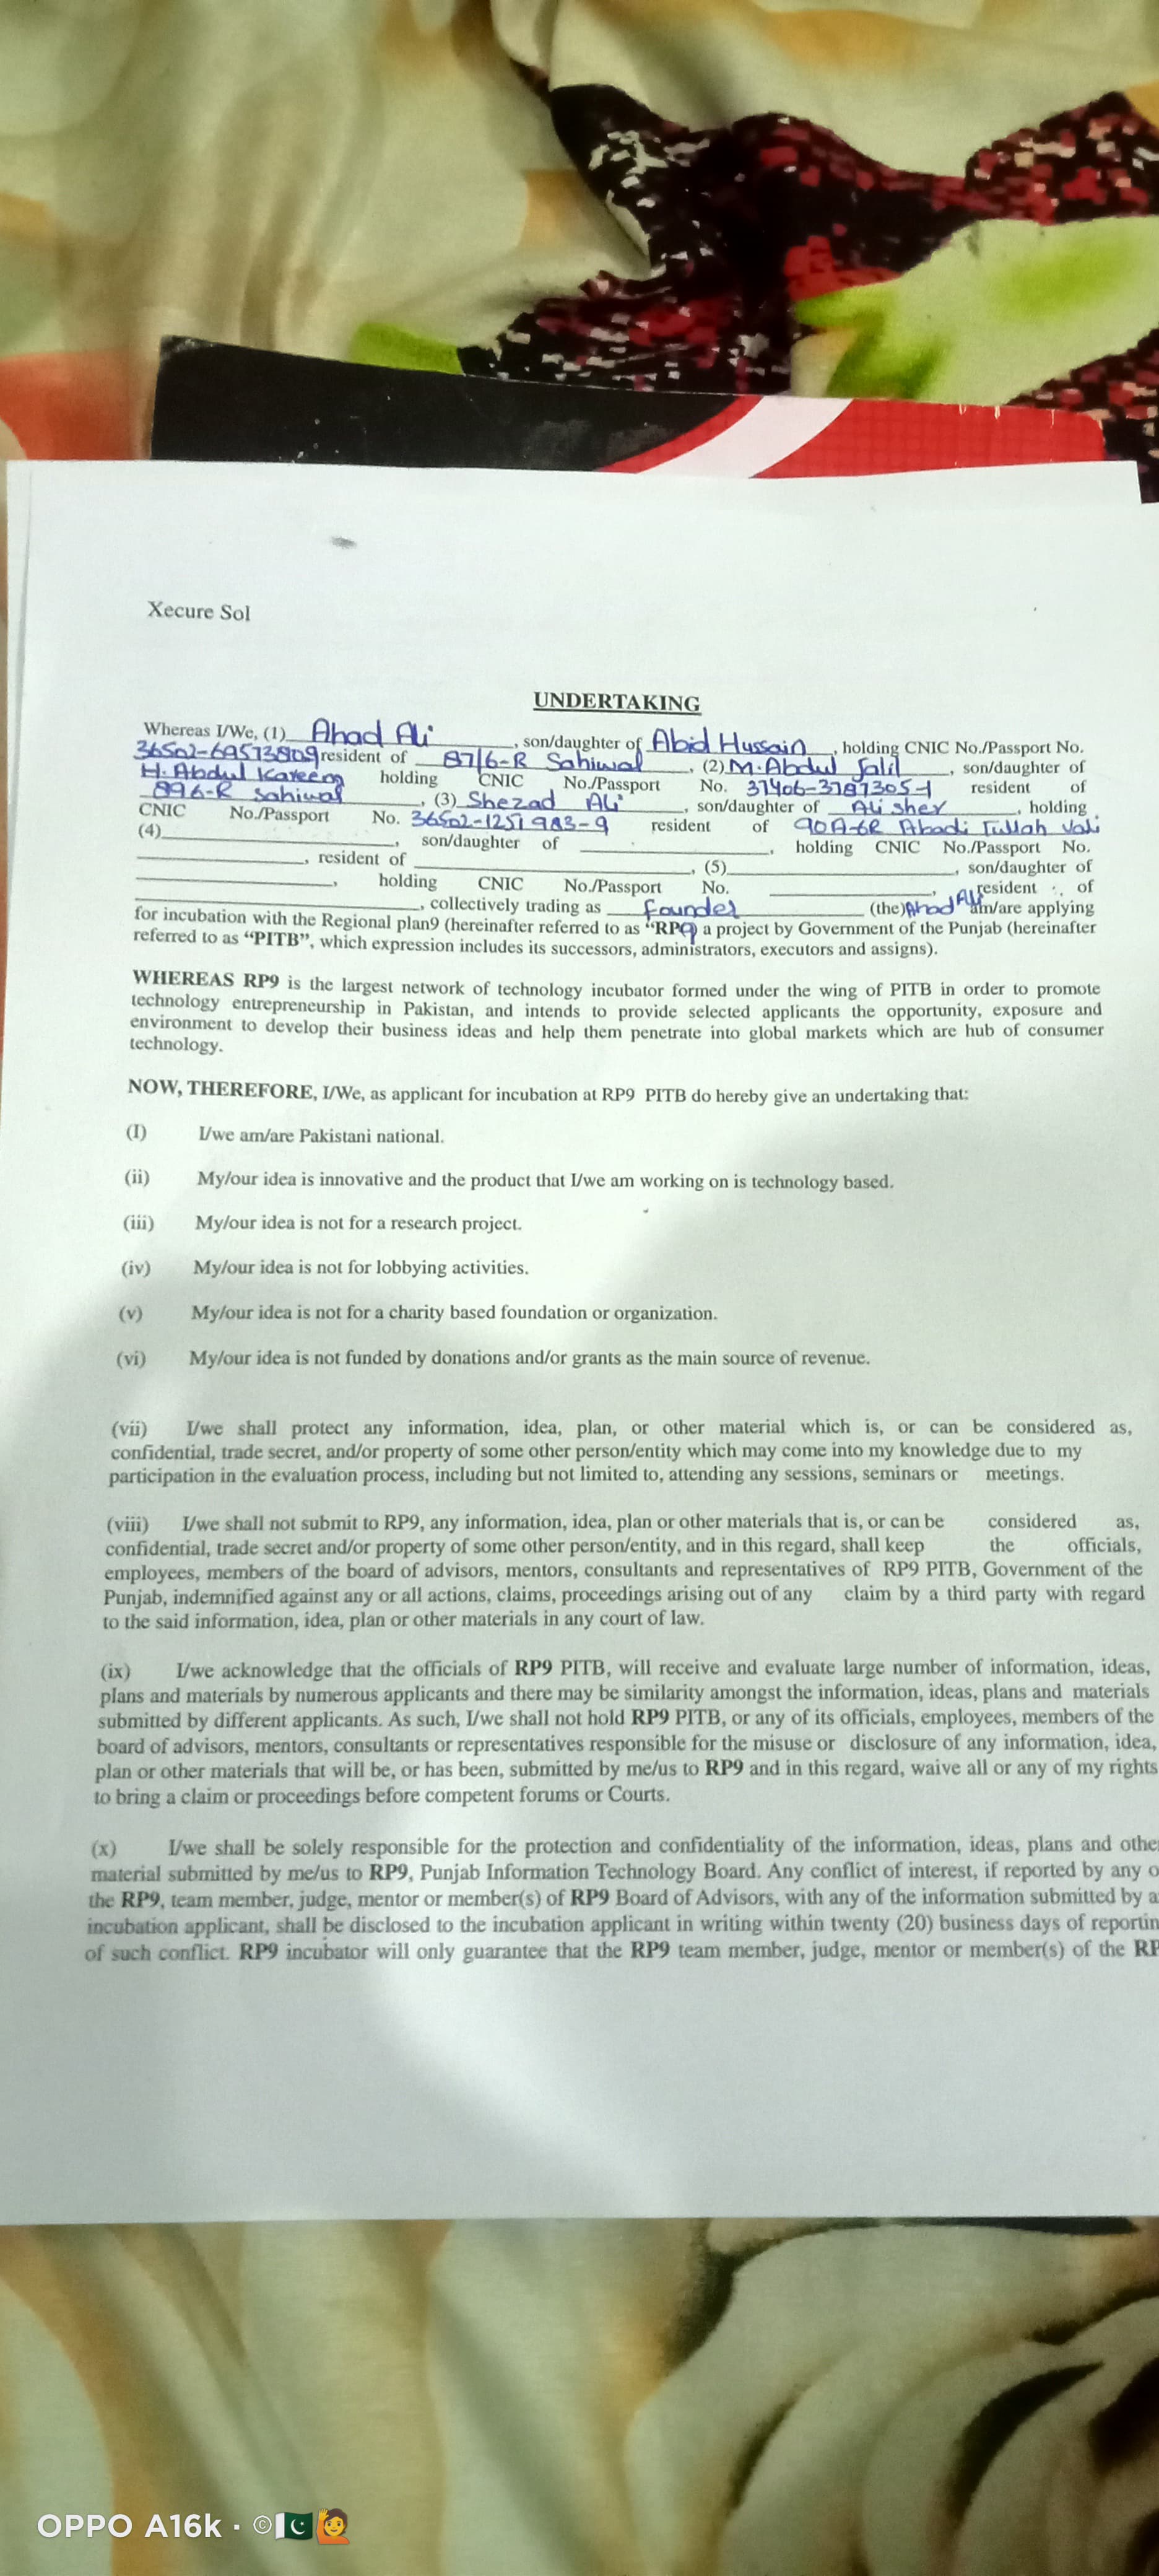 Xecure Sol
UNDERTAKING
Whereas I/We, (1) Ahad Ali, son/daughter of Abid Hussain, holding CNIC No./Passport No.
36502-69573809 resident of 87/6-R Sahiwal, (2) M. Abdul Jalil, son/daughter of
H. Abdul Kareem holding CNIC No./Passport No. 37406-3787305-1 resident of
896-R Sahiwal, (3) Shezad Ali, son/daughter of Ali sher, holding
CNIC No./Passport No. 36502-1251983-9 resident of 90A-6R Abadi
(4)____, son/daughter of ____, holding CNIC No./Passport No.
____, resident of ____, (5)____, son/daughter of
____, holding CNIC No./Passport No. ____, resident of
____, collectively trading as founder (the) Ahad Ali am/are applying
for incubation with the Regional plan9 (hereinafter referred to as “RP9) a project by Government of the Punjab (hereinafter
referred to as “PITB”, which expression includes its successors, administrators, executors and assigns).
WHEREAS RP9 is the largest network of technology incubator formed under the wing of PITB in order to promote
technology entrepreneurship in Pakistan, and intends to provide selected applicants the opportunity, exposure and
environment to develop their business ideas and help them penetrate into global markets which are hub of consumer
technology.
NOW, THEREFORE, I/We, as applicant for incubation at RP9 PITB do hereby give an undertaking that:
(I) I/we am/are Pakistani national.
(ii) My/our idea is innovative and the product that I/we am working on is technology based.
(iii) My/our idea is not for a research project.
(iv) My/our idea is not for lobbying activities.
(v) My/our idea is not for a charity based foundation or organization.
(vi) My/our idea is not funded by donations and/or grants as the main source of revenue.
(vii) I/we shall protect any information, idea, plan, or other material which is, or can be considered as,
confidential, trade secret, and/or property of some other person/entity which may come into my knowledge due to my
participation in the evaluation process, including but not limited to, attending any sessions, seminars or meetings.
(viii) I/we shall not submit to RP9, any information, idea, plan or other materials that is, or can be considered as,
confidential, trade secret and/or property of some other person/entity, and in this regard, shall keep the officials,
employees, members of the board of advisors, mentors, consultants and representatives of RP9 PITB, Government of the
Punjab, indemnified against any or all actions, claims, proceedings arising out of any claim by a third party with regard
to the said information, idea, plan or other materials in any court of law.
(ix) I/we acknowledge that the officials of RP9 PITB, will receive and evaluate large number of information, ideas,
plans and materials by numerous applicants and there may be similarity amongst the information, ideas, plans and materials
submitted by different applicants. As such, I/we shall not hold RP9 PITB, or any of its officials, employees, members of the
board of advisors, mentors, consultants or representatives responsible for the misuse or disclosure of any information, idea,
plan or other materials that will be, or has been, submitted by me/us to RP9 and in this regard, waive all or any of my rights
to bring a claim or proceedings before competent forums or Courts.
(x) I/we shall be solely responsible for the protection and confidentiality of the information, ideas, plans and othe
material submitted by me/us to RP9, Punjab Information Technology Board. Any conflict of interest, if reported by any o
the RP9, team member, judge, mentor or member(s) of RP9 Board of Advisors, with any of the information submitted by a
incubation applicant, shall be disclosed to the incubation applicant in writing within twenty (20) business days of reportin
of such conflict. RP9 incubator will only guarantee that the RP9 team member, judge, mentor or member(s) of the RP
OPPO A16k · ©🇵🇰🙋